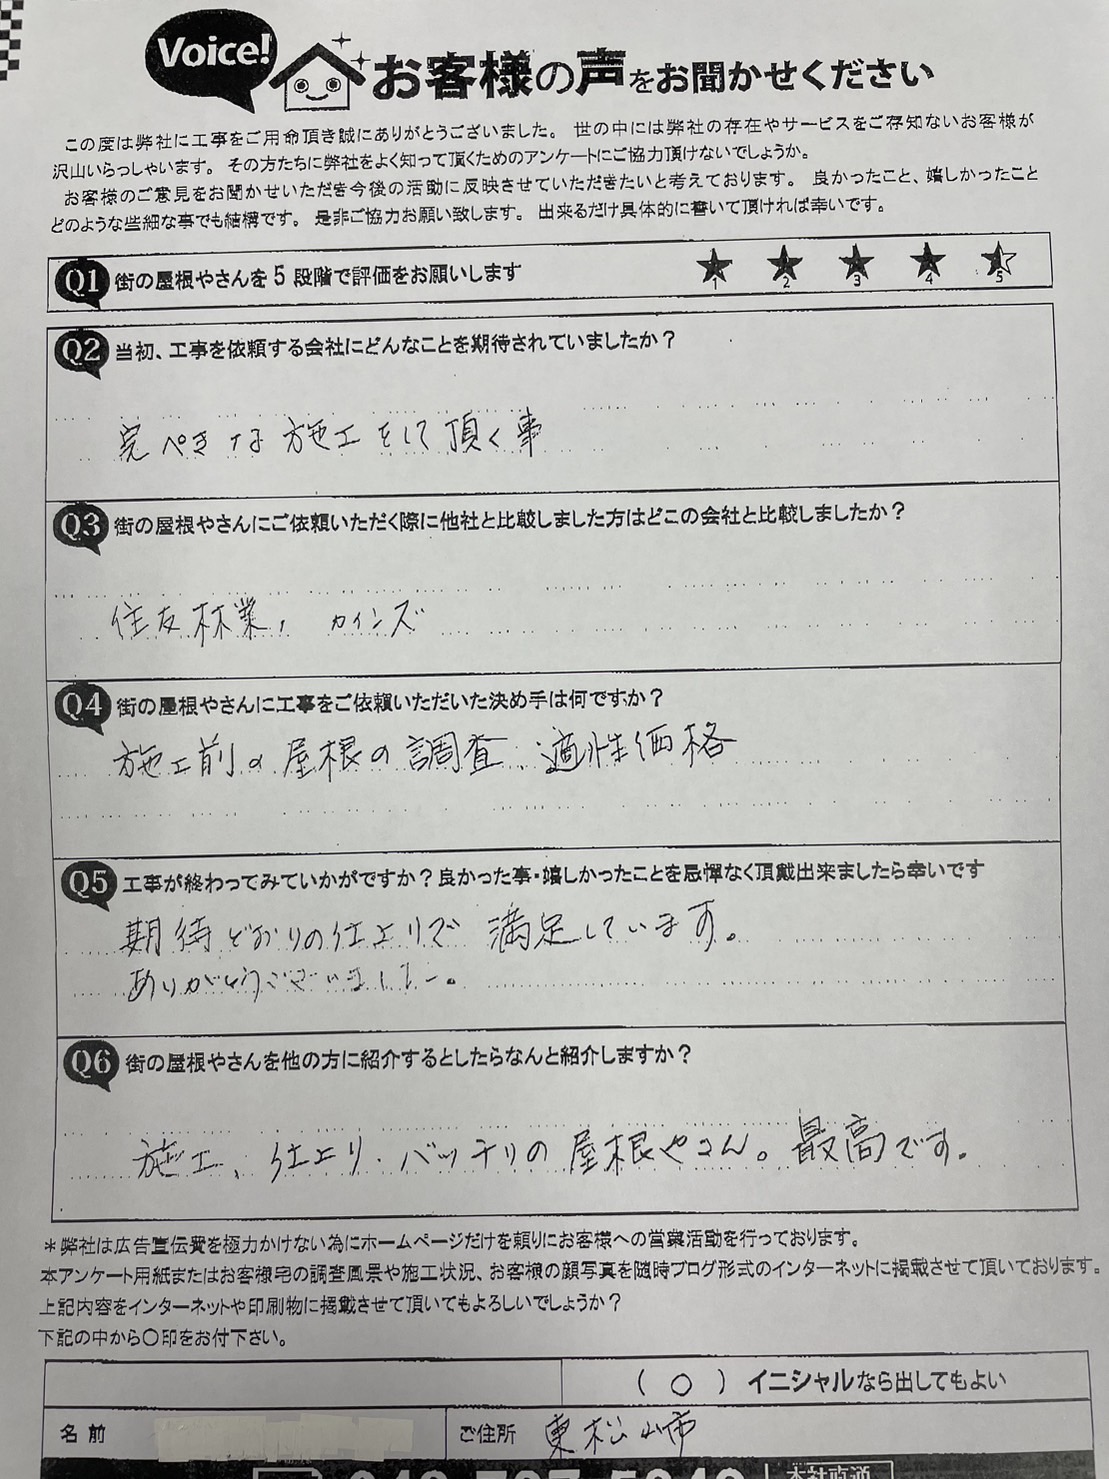 Voice! お客様の声をお聞かせください
この度は弊社に工事をご用命頂き誠にありがとうございました。 世の中には弊社の存在やサービスをご存知ないお客様が
沢山いらっしゃいます。 その方たちに弊社をよく知って頂くためのアンケートにご協力頂けないでしょうか。
お客様のご意見をお聞かせいただき今後の活動に反映させていただきたいと考えております。 良かったこと、嬉しかったこと
どのような些細な事でも結構です。 是非ご協力お願い致します。 出来るだけ具体的に書いて頂ければ幸いです。
Q1 街の屋根やさんを5段階で評価をお願いします ★ ★ ★ ★ ★
1 2 3 4 5
Q2 当初、工事を依頼する会社にどんなことを期待されていましたか？
完ぺきな施工をして頂く事
Q3 街の屋根やさんにご依頼いただく際に他社と比較しました方はどこの会社と比較しましたか？
住友林業, カインズ
Q4 街の屋根やさんに工事をご依頼いただいた決め手は何ですか？
施工前の屋根の調査、適性価格
Q5 工事が終わってみていかがですか？良かった事・嬉しかったことを忌憚なく頂戴出来ましたら幸いです
期待どおりの仕上りで 満足しています。
ありがとうございました。
Q6 街の屋根やさんを他の方に紹介するとしたらなんと紹介しますか？
施工、仕上り・バッチリの屋根やさん。最高です。
＊弊社は広告宣伝費を極力かけない為にホームページだけを頼りにお客様への営業活動を行っております。
本アンケート用紙またはお客様宅の調査風景や施工状況、お客様の顔写真を随時ブログ形式のインターネットに掲載させて頂いております。
上記内容をインターネットや印刷物に掲載させて頂いてもよろしいでしょうか？
下記の中から〇印をお付下さい。
（ ○ ） イニシャルなら出してもよい
名前 ご住所 東松山市
本社直通